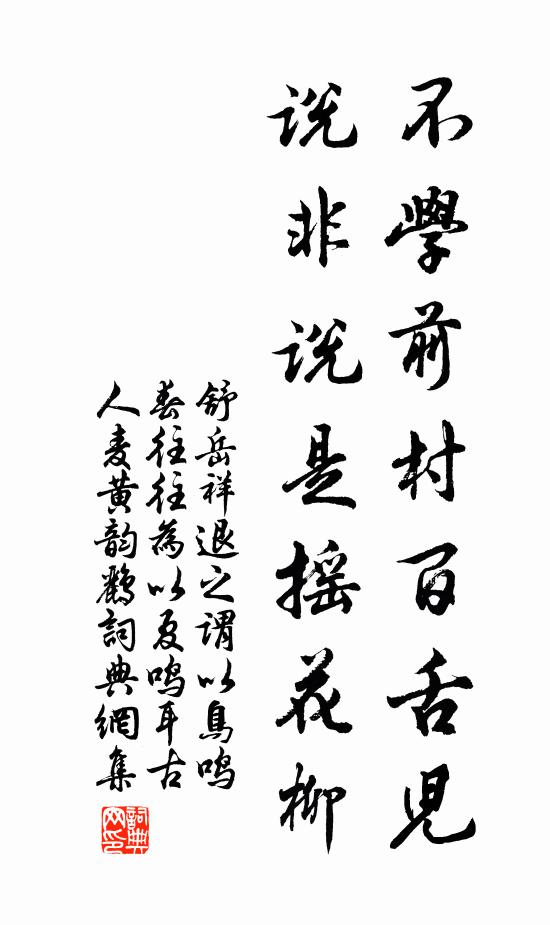 不學前村百舌児
说非说是摇花柳
舒岳祥退之谓以鳥鳴
春往往為以夏鳴耳古
人麦黄韵鹂詞典網集
詞典
网印